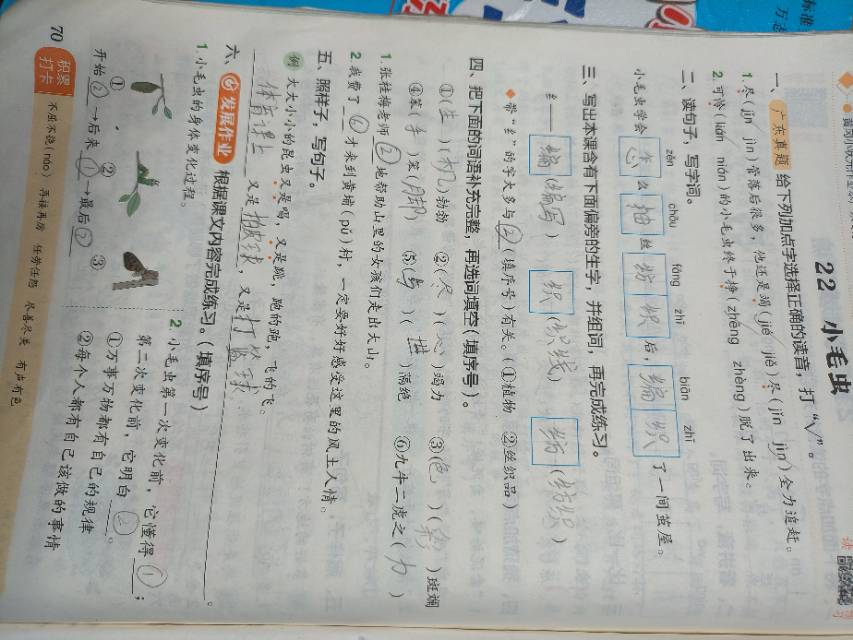 22 小毛虫
一、广东真题 给下列加点字选择正确的读音，打“√”。
1. 尽(jǐn jìn)管落后很多，他还是竭(jié jiē)尽(jǐn jìn)全力追赶。
2. 可怜(lián nián)的小毛虫终于挣(zhēng zhèng)脱了出来。
二、读句子，写字词。
zěn chōu fǎng zhī biān zhī
小毛虫学会怎么抽丝纺织后，编织了一间茧屋。
三、写出本课含有下面偏旁的生字，并组词，再完成练习。
纟—— 编(编写) 织(织线) 纺(纺织)
◆带“纟”的字大多与②(填序号)有关。(①植物 ②丝织品)
四、把下面的词语补充完整，再选词填空(填序号)。
①(生)(机)勃勃 ②(尽)(心)竭力 ③(色)( )斑斓
④笨(手)笨(脚) ⑤(与)( )隔绝 ⑥九牛二虎之(力)
1. 张桂梅老师②地帮助山里的女孩们走出大山。
2. 我费了⑥才来到黄埔(pǔ)村，一定要好好感受这里的风土人情。
五、照样子，写句子。
例 大大小小的昆虫又是唱，又是跳，跑的跑，飞的飞。
体育课上 又是拔球，又是打篮球。
六、发展作业 根据课文内容完成练习。(填序号)
1. 小毛虫的身体变化过程。
① ② ③
开始②→后来①→最后③
2. 小毛虫第一次变化前，它懂得①；
第二次变化前，它明白②。
①万事万物都有自己的规律
②每个人都有自己该做的事情
70 积累打卡 不屈不挠(náo) 再接再厉 任劳任怨 尽善尽美 有声有色